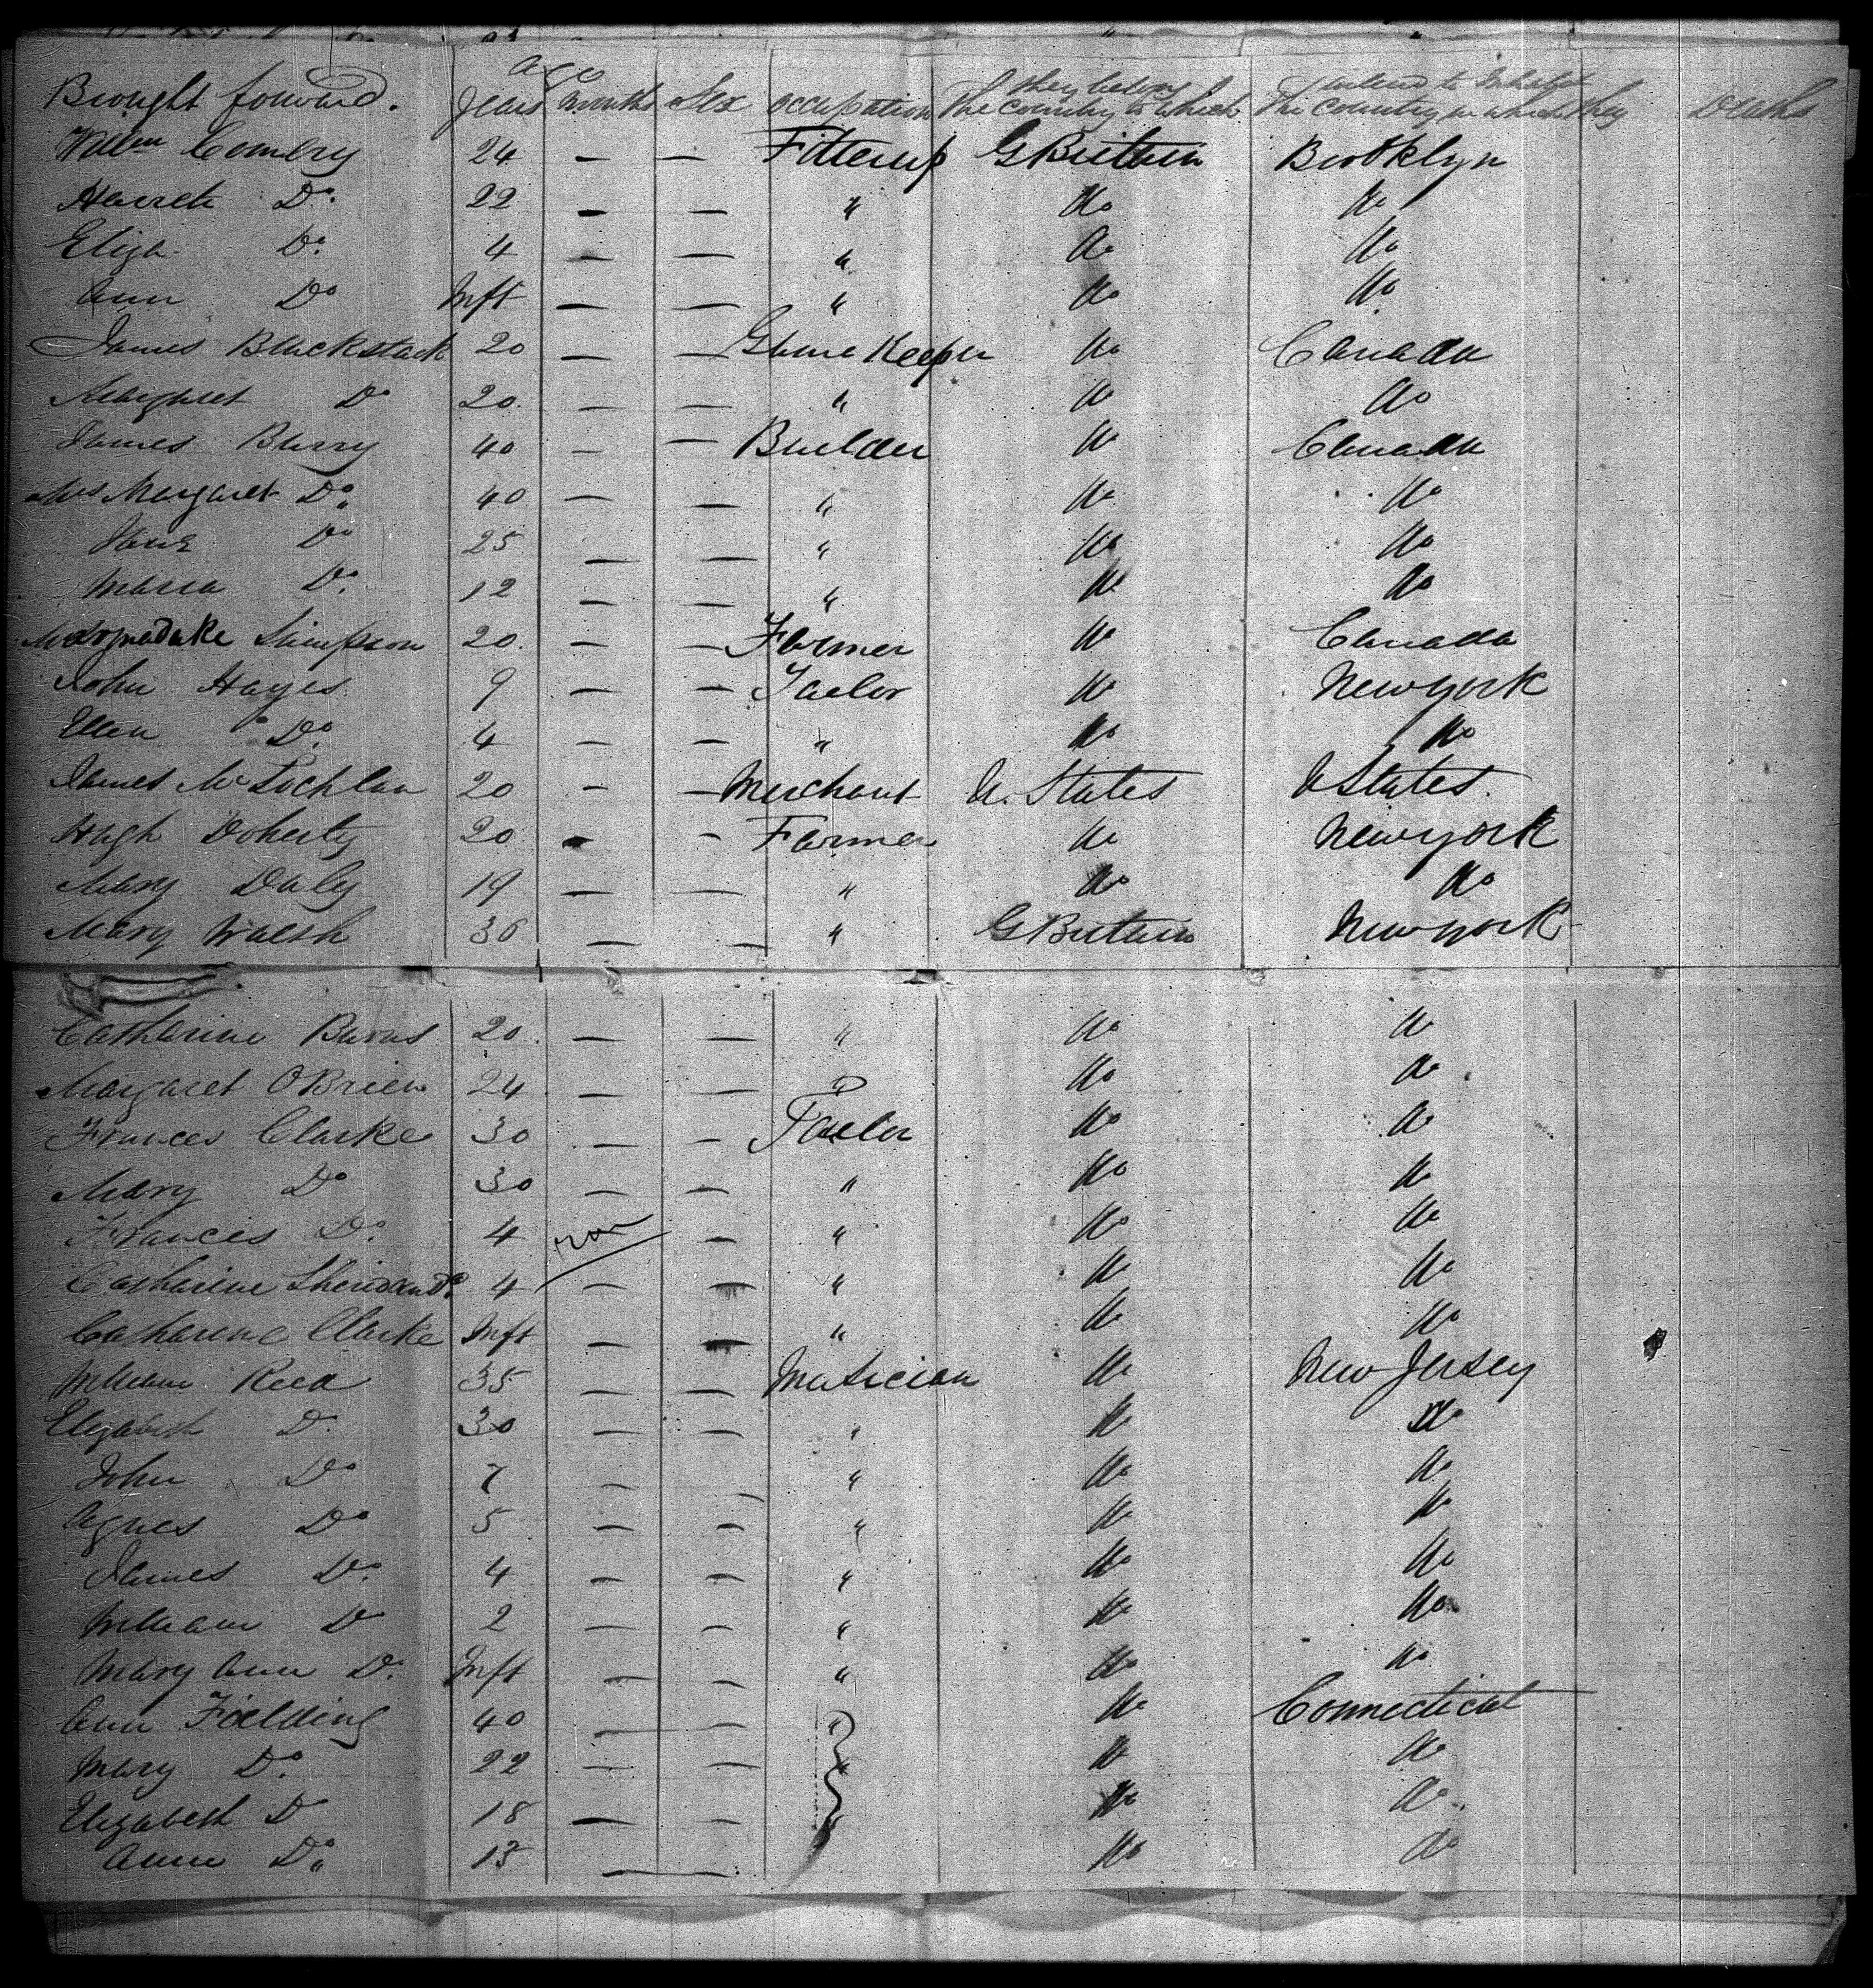 Age
Brought forward. Years Months Sex Occupation The Country to which they belong The Country in which they intend to Inhabit Deaths
Willm Combry 24 — — Fitterup G Britain Brooklyn
Harrett Do. 22 — — " Do Do
Eliza Do. 4 — — " Do Do
Ann Do Inft — — " Do Do
James Blackstack 20 — — Game Keeper Do Canada
Margaret Do 20. — — " Do Do
James Barry 40 — — Builder Do Canada
Mrs Margaret Do. 40 — — " Do Do
Jane Do 25 — — " Do Do
Maria Do. 12 — — " Do Do
Marmaduke Simpson 20. — — Farmer Do Canada
John Hayes 9 — — Taelor Do Newyork
Ellen Do. 4 — — " Do Do
James McLochlan 20 — — Merchant U. States U States.
Hugh Doherty 20 — — Farmer Do Newyork
Mary Daly 19 — — " Do Do
Mary Walsh 36 — — " G Britain Newyork
Catharine Burns 20. — — " Do Do
Margaret O'Brien 24 — — " Do Do
Frances Clarke 30 — — Taelor Do Do
Mary Do 30 — — " Do Do
Francis Do. 4 — " Do Do
Catharine Sheridan Do. 4 — — " Do Do
Catharine Clarke Inft — — " Do Do
William Reed 35 — — Musician Do New Jersey
Elizabeth Do 30 — — " Do Do
John Do 7 — — " Do Do
Agnes Do 5 — — " Do Do
James Do. 4 — — " Do Do
William Do 2 — — " Do Do
Mary Ann Do. Inft — — " Do Do
Ann Fielding 40 — — " Do Connecticut
Mary Do. 22 — — " Do Do
Elizabeth Do 18 — — " Do Do
Anne Do. 13 — — Do Do